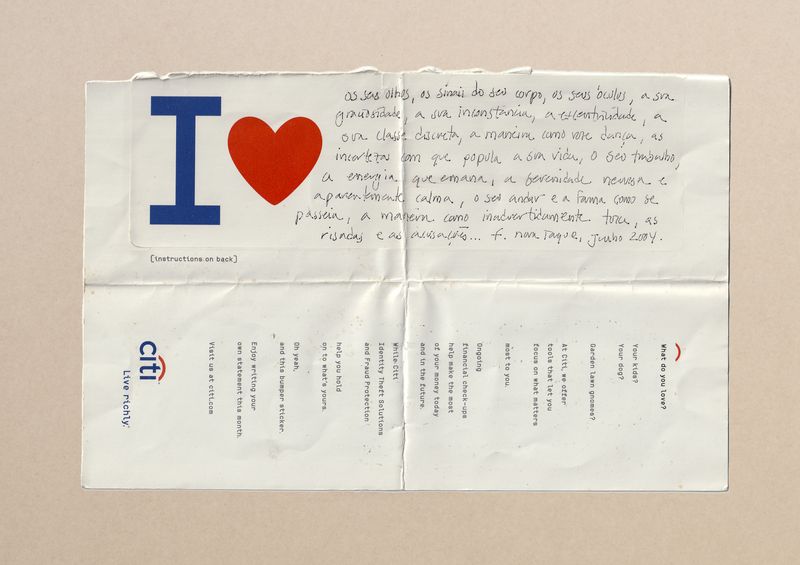 I
os seus olhos, os sinais do seu corpo, os seus óculos, a sua
graciosidade, a sua inconstância, a excentricidade, a
sua classe discreta, a maneira como você dança, as
incertezas com que popula a sua vida, o seu trabalho,
a energia que emana, a serenidade nervosa e
aparentemente calma, o seu andar e a forma como se
passeia, a maneira como inadvertidamente toca, as
risadas e as acusações... f. nova iorque, junho 2004.
[instructions on back]
What do you love?
Your kids?
Your dog?
Garden lawn gnomes?
At Citi, we offer
tools that let you
focus on what matters
most to you.
Ongoing
financial check-ups
help make the most
of your money today
and in the future.
While Citi
Identity Theft Solutions
and Fraud Protection
help you hold
on to what's yours.
Oh yeah,
and this bumper sticker.
Enjoy writing your
own statement this month.
Visit us at citi.com
citi
Live richly.